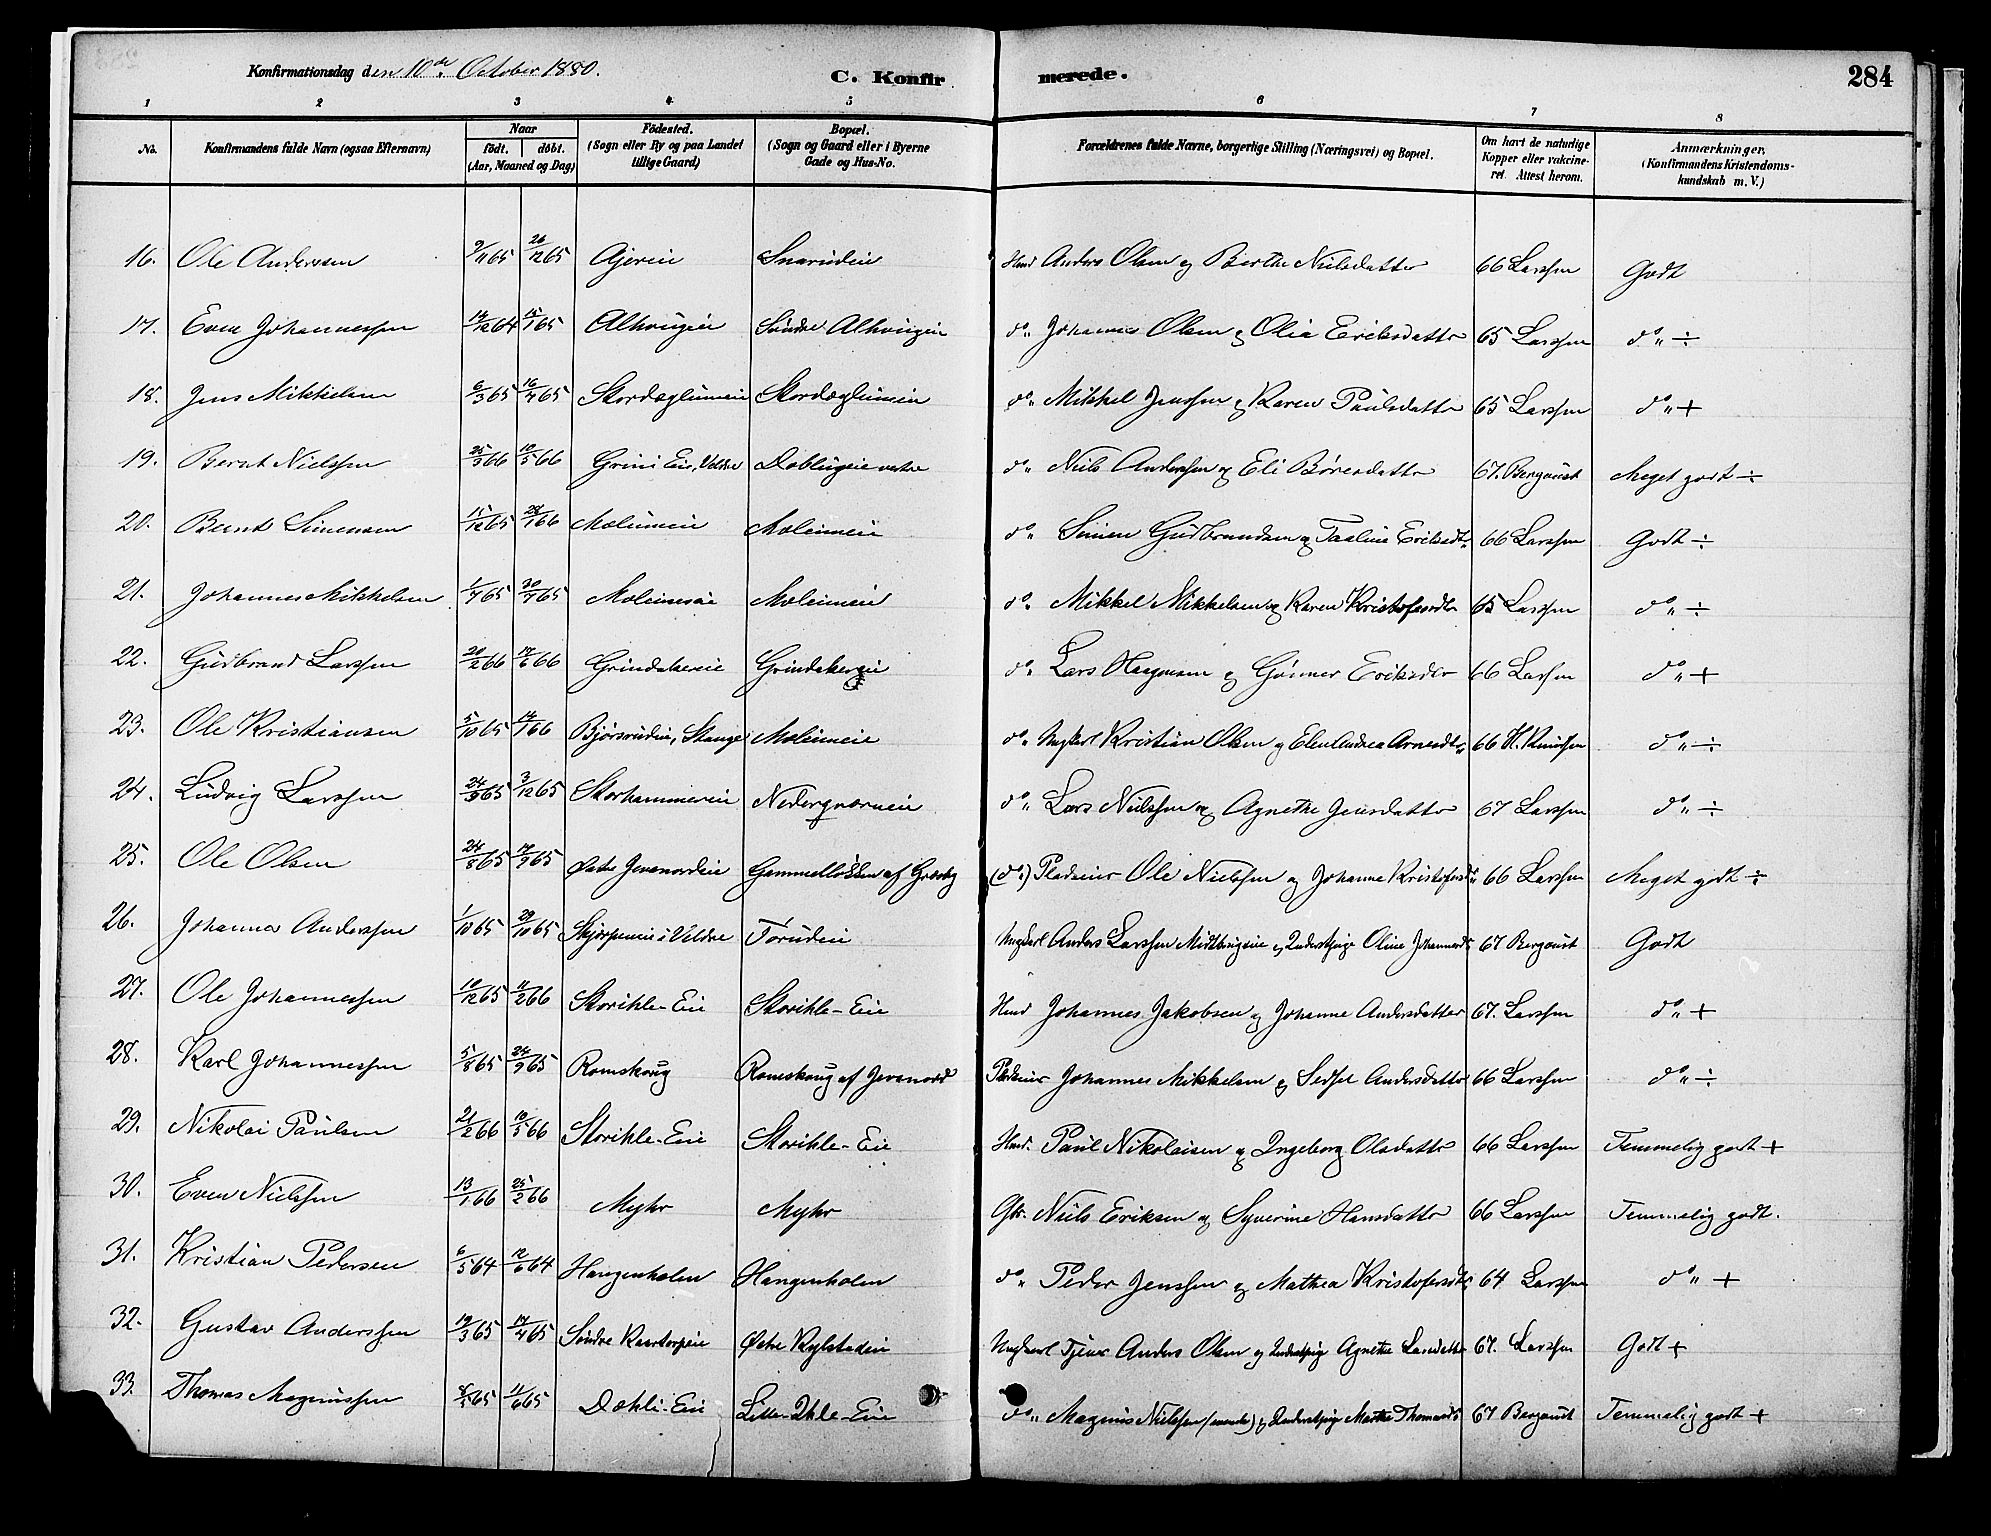 Konfirmationsdag den 10de October 1880. C. Konfirmerede. 284
1 2 3 4 5 6 7 8
No. Konfirmandens fulde Navn (ogsaa Efternavn) Naar født. døbt. (Aar, Maaned og Dag) Födested. (Sogn eller By og paa Landet tillige Gaard) Bopæl. (Sogn og Gaard eller i Byerne Gade og Hus-No. Forældrenes fulde Navne, borgerlige Stilling (Næringsvei) og Bopæl. Om havt de naturlige Kopper eller vakcineret. Attest herom. Anmærkninger. (Konfirmandens Kristendomskundskab m. V.)
16. Ole Anderssen 9/11 65 26/12 65 Ajereie Snarudeie Husd Anders Olsen og Berthe Nielsdatter 66 Larssen Godt
17. Even Johannessen 14/12 64 15/1 65 Alhougeie Søndre Alhougeie do. Johannes Olsen og Olia Eriksdatter 65 Larssen do. ÷
18. Jens Mikkelsen 6/3 65 16/4 65 Skordæglumeie Skordæglumeie do. Mikkel Jenssen og Karen Paulsdatter 65 Larssen do. +
19. Bernt Nielssen 25/3 66 10/5 66 Grini Eie, Veldre Doblugeie vestre do. Niels Anderssen og Eli Børesdatter 67. Bergaust Meget godt ÷
20. Bernt Simensen 15/12 65 28/1 66 Mælumeie Mælumeie do. Simen Gudbrandsen og Taaline Eriksdt. 66 Larssen Godt ÷
21. Johannes Mikkelsen 1/7 65 30/7 65 Mælumeie Mælumeie do. Mikkel Mikkelsen og Karen Kristofersdt. 65 Larssen do. ÷
22. Gudbrand Larssen 20/2 66 17/6 66 Grindakereie Grindakereie do. Lars Haagensen og Gunner Eriksdr 66 Larssen do. +
23. Ole Kristiansen 5/10 65 14/1 66 Bjørsrudeie, Stange Mælumeie do. Ungkarl Kristian Olsen og Elen Andrea Arnesdt. 66 H. Knudsen do. ÷
24. Ludvig Larssen 24/9 65 3/12 65 Storhammereie Nederqværneie do. Lars Nielssen og Agnethe Jensdatter 67 Larssen do. ÷
25. Ole Olsen 24/8 65 17/9 65 Østre Jevanordeie Gammelløkken af Græsby (do.) Pladseier Ole Nielssen og Johanne Kristofersdt. 66 Larssen Meget godt ÷
26. Johannes Anderssen 1/10 65 29/10 65 Skjørpeneie i Veldre Torudeie Ungkarl Anders Larssen Midtbrugseie og Inderstpige Oline Johannesdt. 67 Bergaust Godt
27. Ole Johannessen 10/12 65 11/2 66 Storihle-Eie Storihle-Eie Husd Johannes Jakobsen og Johanne Andersdatter 67. Larssen do. +
28. Karl Johannessen 5/8 65 24/9 65 Romskoug Romskoug af Jevanord Pladseier Johannes Mikkelsen og Sedsel Andersdatter 66 Larssen do. ÷
29. Nikolai Paulsen 21/2 66 10/5 66 Storihle-Eie Storihle-Eie Husd. Paul Nikolaisen og Ingeborg Olsdatter 66 Larssen Temmelig godt +
30. Even Nielssen 13/1 66 25/2 66 Myhr Myhr Gbr. Niels Eriksen og Syverine Hansdatter 66 Larssen Temmelig godt.
31. Kristian Pedersen 6/5 64 12/6 64 Haugenholen Haugenholen do. Peder Jenssen og Mathea Kristofersdt. 64 Larssen do. +
32. Gustav Anderssen 19/3 65 17/4 65 Søndre Kaartorpeie Østre Kylstadeie Ungkarl Tjener Anders Olsen og Inderstpige Agnethe Larsdatter 67. Larssen Godt +
33. Thomas Magnussen 8/5 65 11/6 65 Dæhli-Eie Lille-Ihle-Eie do. Magnus Nielssen og Inderstpige Marthe Thomasdt. 67 Bergaust Temmelig godt +